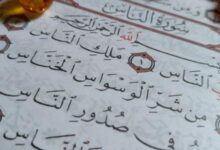 سُورَةُ النَّاسِ
بِسْمِ اللَّهِ الرَّحْمَٰنِ الرَّحِيمِ
النَّاسِ ١ مَلِكِ النَّاسِ
مِن شَرِّ الْوَسْوَاسِ الْخَنَّاسِ
فِي صُدُورِ النَّاسِ
وَالنَّاسِ